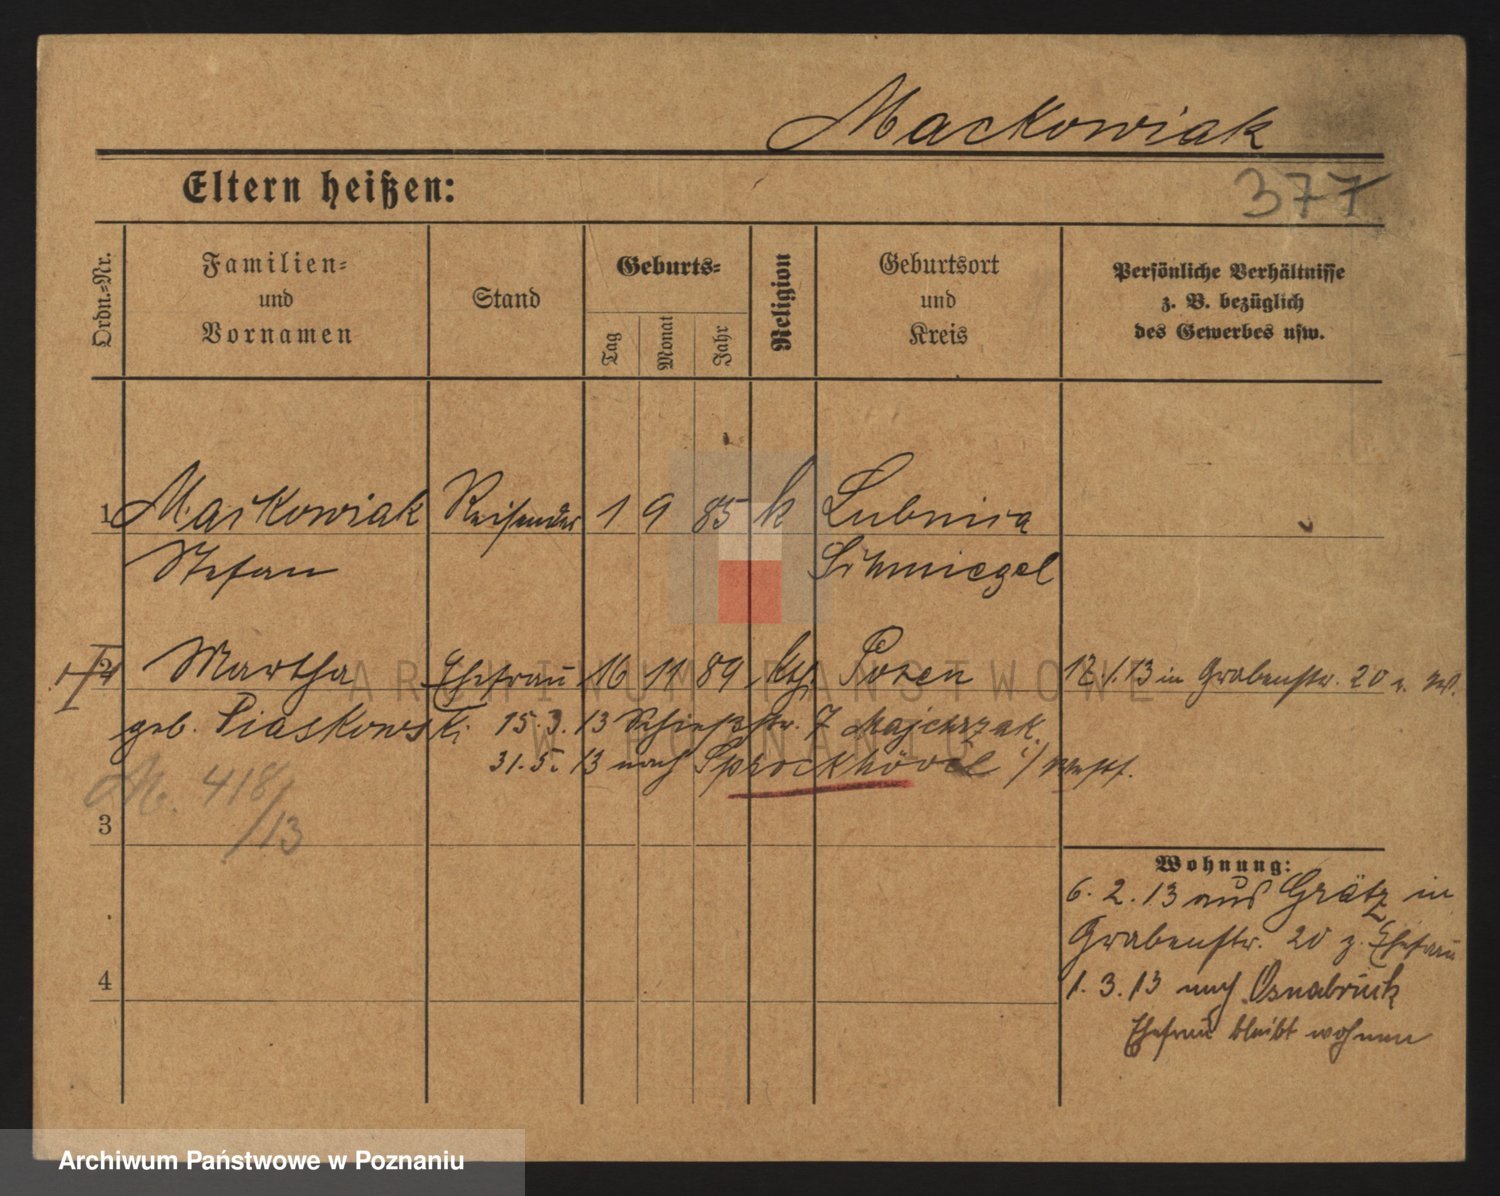 Mackowiak
377
Eltern heißen:
Ordn.-Nr.
Familien-
und
Vornamen
Stand
Geburts-
Tag
Monat
Jahr
Religion
Geburtsort
und
Kreis
Persönliche Verhältnisse
z. B. bezüglich
des Gewerbes usw.
1 Mackowiak Reisender 1 9 85 k Lubnica
Stefan Schmiegel
2 Martha Ehefrau 16 11 89 kth. Posen 12.1.13 in Grabenstr. 20
geb. Piaskowski 15.3.13 Schießstr. 7 Majchrzak
31.5.13 nach Sprockhövel i/Westf.
M. 418/13
3
Wohnung:
6.2.13 aus Grätz in
Grabenstr. 20 z. Ehefrau
4
1.3.13 nach Osnabrück
Ehefrau bleibt wohnen
ARCHIWUM PAŃSTWOWE
W POZNANIU
Archiwum Państwowe w Poznaniu